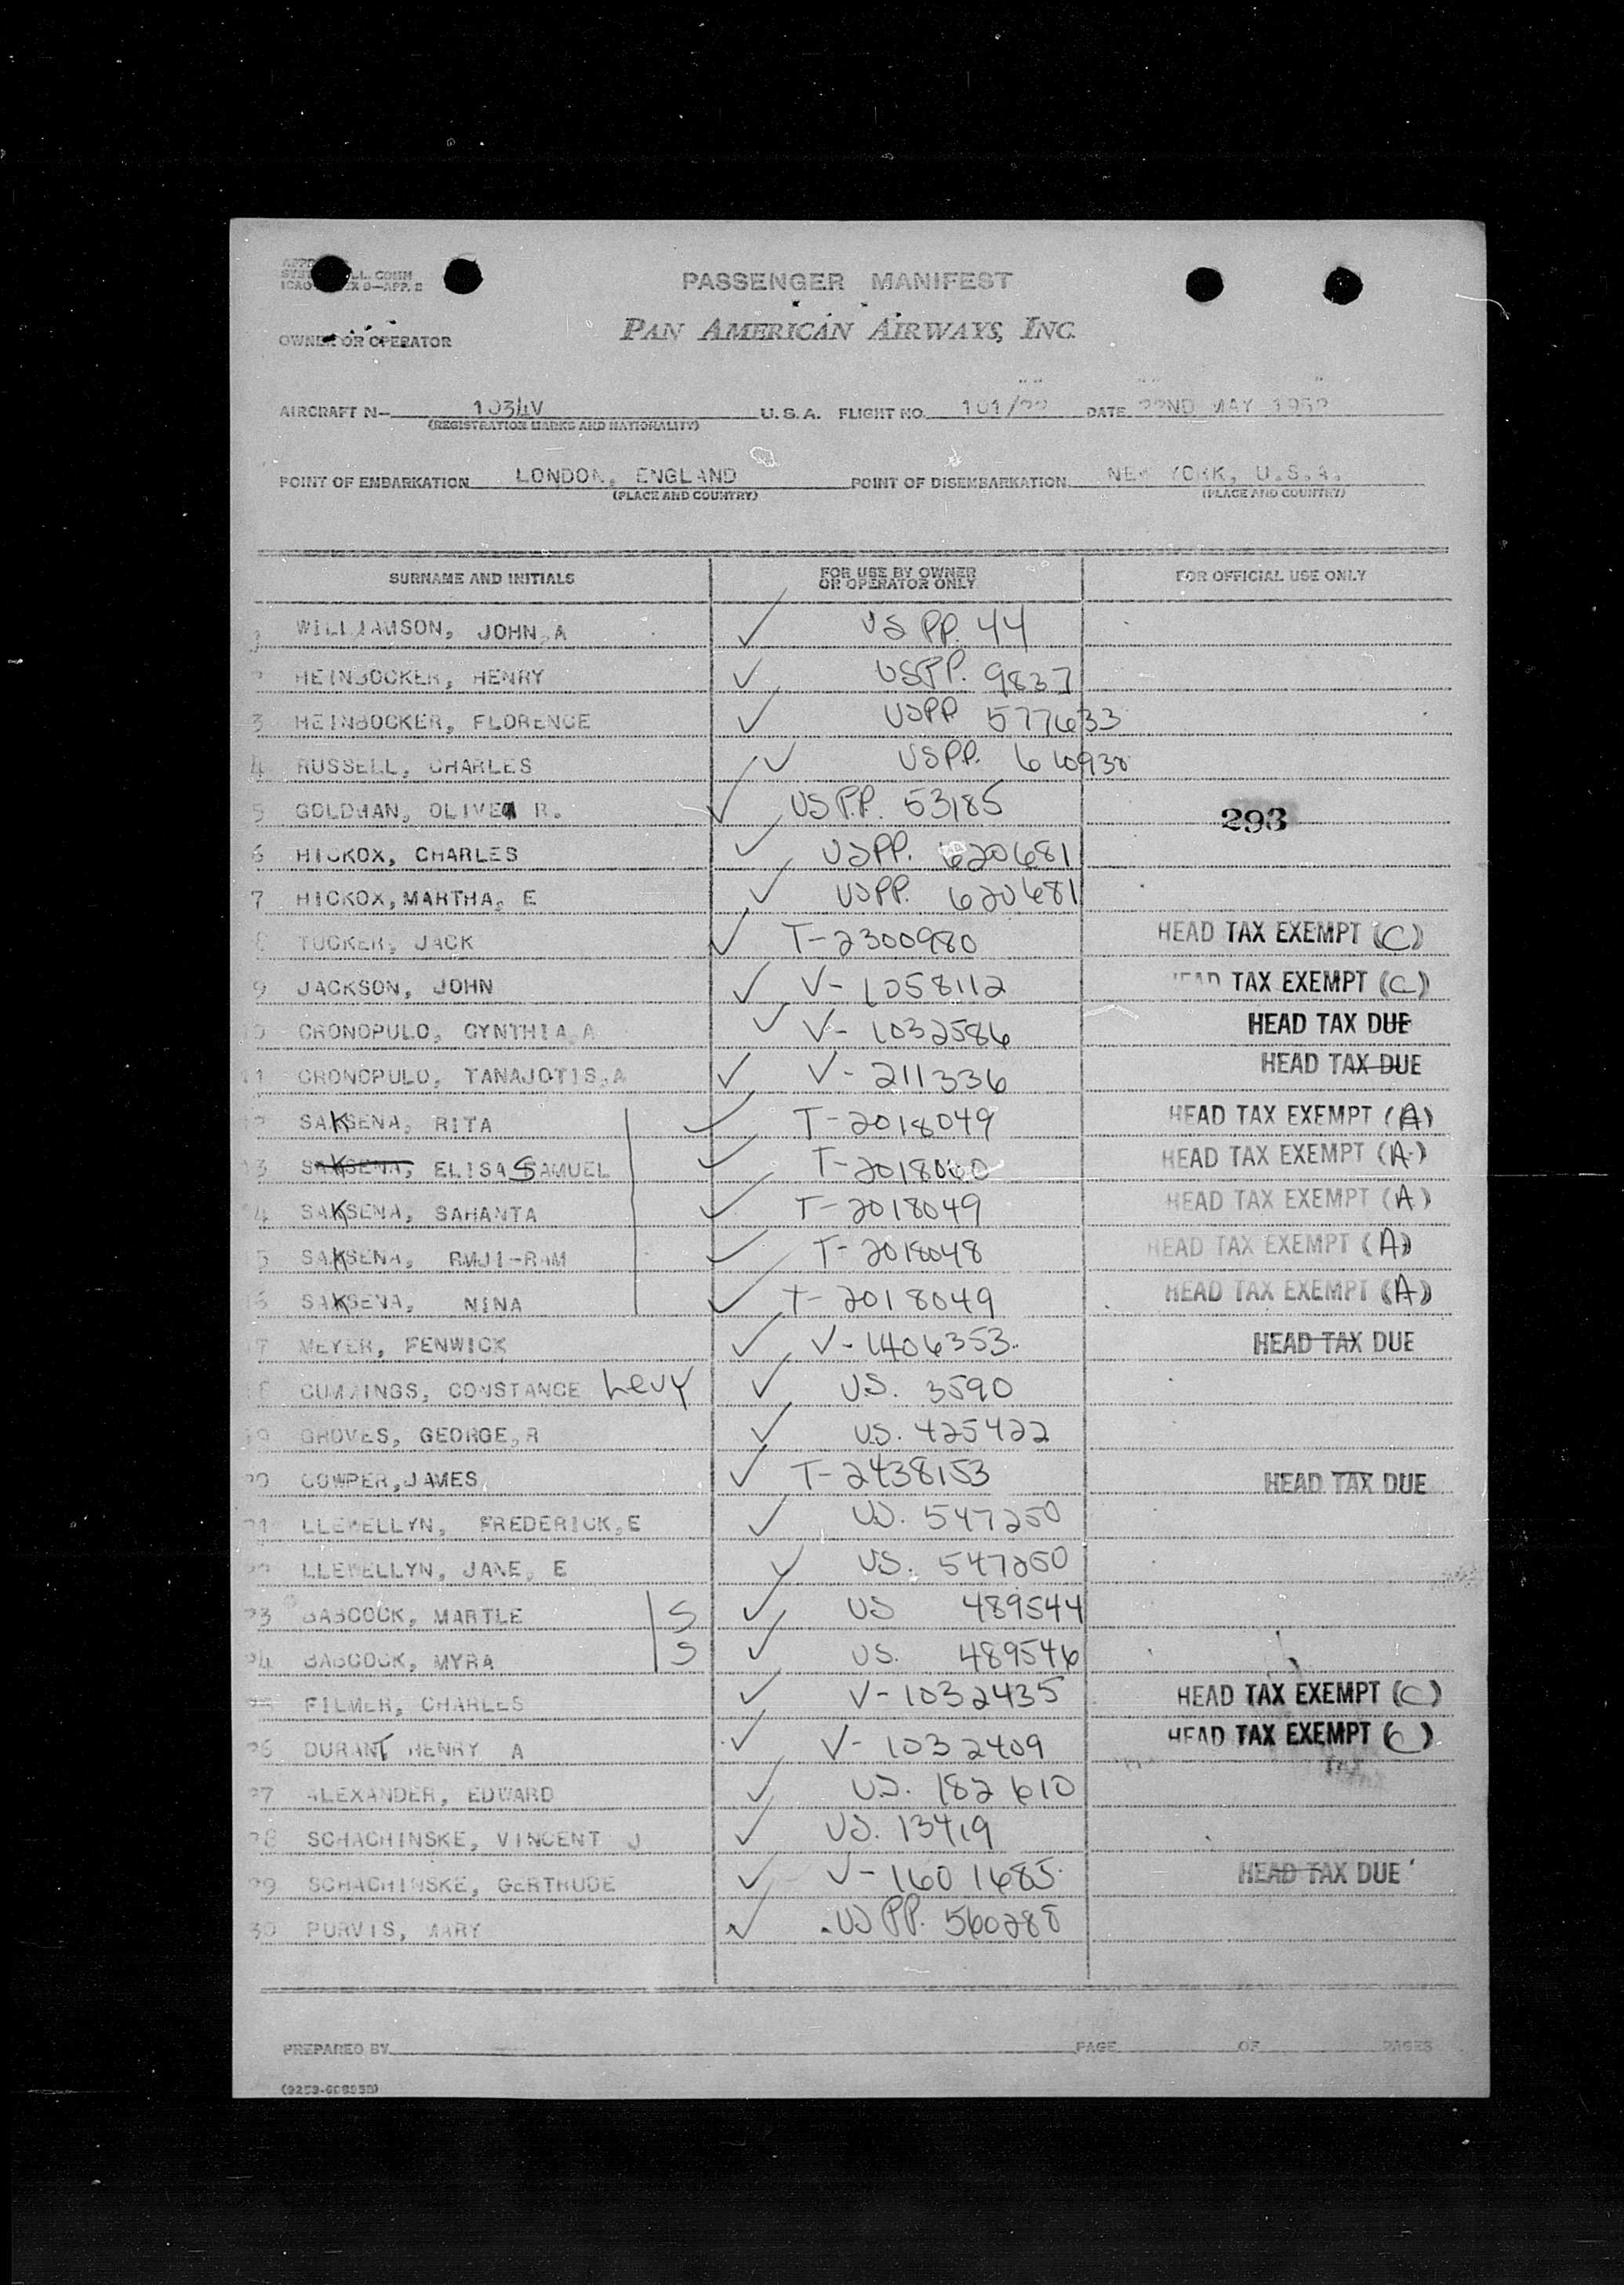 PASSENGER MANIFEST
OWNER OR OPERATOR PAN AMERICAN AIRWAYS, INC.
AIRCRAFT N- 1034V U. S. A. FLIGHT NO. 101/22 DATE 22ND MAY 1952
(REGISTRATION MARKS AND NATIONALITY)
POINT OF EMBARKATION LONDON, ENGLAND POINT OF DISEMBARKATION NEW YORK, U.S.A.
(PLACE AND COUNTRY) (PLACE AND COUNTRY)
SURNAME AND INITIALS FOR USE BY OWNER OR OPERATOR ONLY FOR OFFICIAL USE ONLY
1 WILLIAMSON, JOHN,A ✓ US PP. 44
2 HEINBOCKER, HENRY ✓ USPP. 9837
3 HEINBOCKER, FLORENCE ✓ USPP 577633
4 RUSSELL, CHARLES ✓ USPP. 610930
5 GOLDMAN, OLIVER R. ✓ USP.P. 53185 293
6 HICKOX, CHARLES ✓ USPP. 620681
7 HICKOX,MARTHA, E ✓ USPP. 620681
8 TUCKER, JACK ✓ T-2300980 HEAD TAX EXEMPT (C)
9 JACKSON, JOHN ✓ V- 1058112 HEAD TAX EXEMPT (C)
10 CRONOPULO, CYNTHIA,A ✓ V- 1032586 HEAD TAX DUE
11 CRONOPULO, TANAJOTIS,A ✓ V- 211336 HEAD TAX DUE
12 SAKSENA, RITA ✓ T-2018049 HEAD TAX EXEMPT (A)
13 SAKSENA, ELISA SAMUEL ✓ HEAD TAX EXEMPT (A)
14 SAKSENA, SAHANTA ✓ T-2018049 HEAD TAX EXEMPT (A)
15 SAKSENA, RMJI-RAM ✓ T-2018048 HEAD TAX EXEMPT (A)
16 SAKSENA, NINA ✓ T-2018049 HEAD TAX EXEMPT (A)
17 MEYER, FENWICK ✓ V-1406353. HEAD TAX DUE
18 CUMMINGS, CONSTANCE Levy ✓ U.S. 3590
19 GROVES, GEORGE,R ✓ U.S. 425422
20 COWPER,JAMES ✓ T-2438153 HEAD TAX DUE
21 LLEWELLYN, FREDERICK,E ✓ US. 547250
22 LLEWELLYN, JANE, E ✓ US. 547250
23 BABCOCK, MARTLE S ✓ US 489544
24 BABCOCK, MYRA S ✓ US. 489546
25 FILMER, CHARLES ✓ V-1032435 HEAD TAX EXEMPT (C)
26 DURANT HENRY A ✓ V- 1032409 HEAD TAX EXEMPT (C)
27 ALEXANDER, EDWARD ✓ US. 182610
28 SCHACHINSKE, VINCENT J ✓ US. 13419
29 SCHACHINSKE, GERTRUDE ✓ V-1601685 HEAD TAX DUE
30 PURVIS, MARY ✓ US PP. 560288
PREPARED BY PAGE OF PAGES